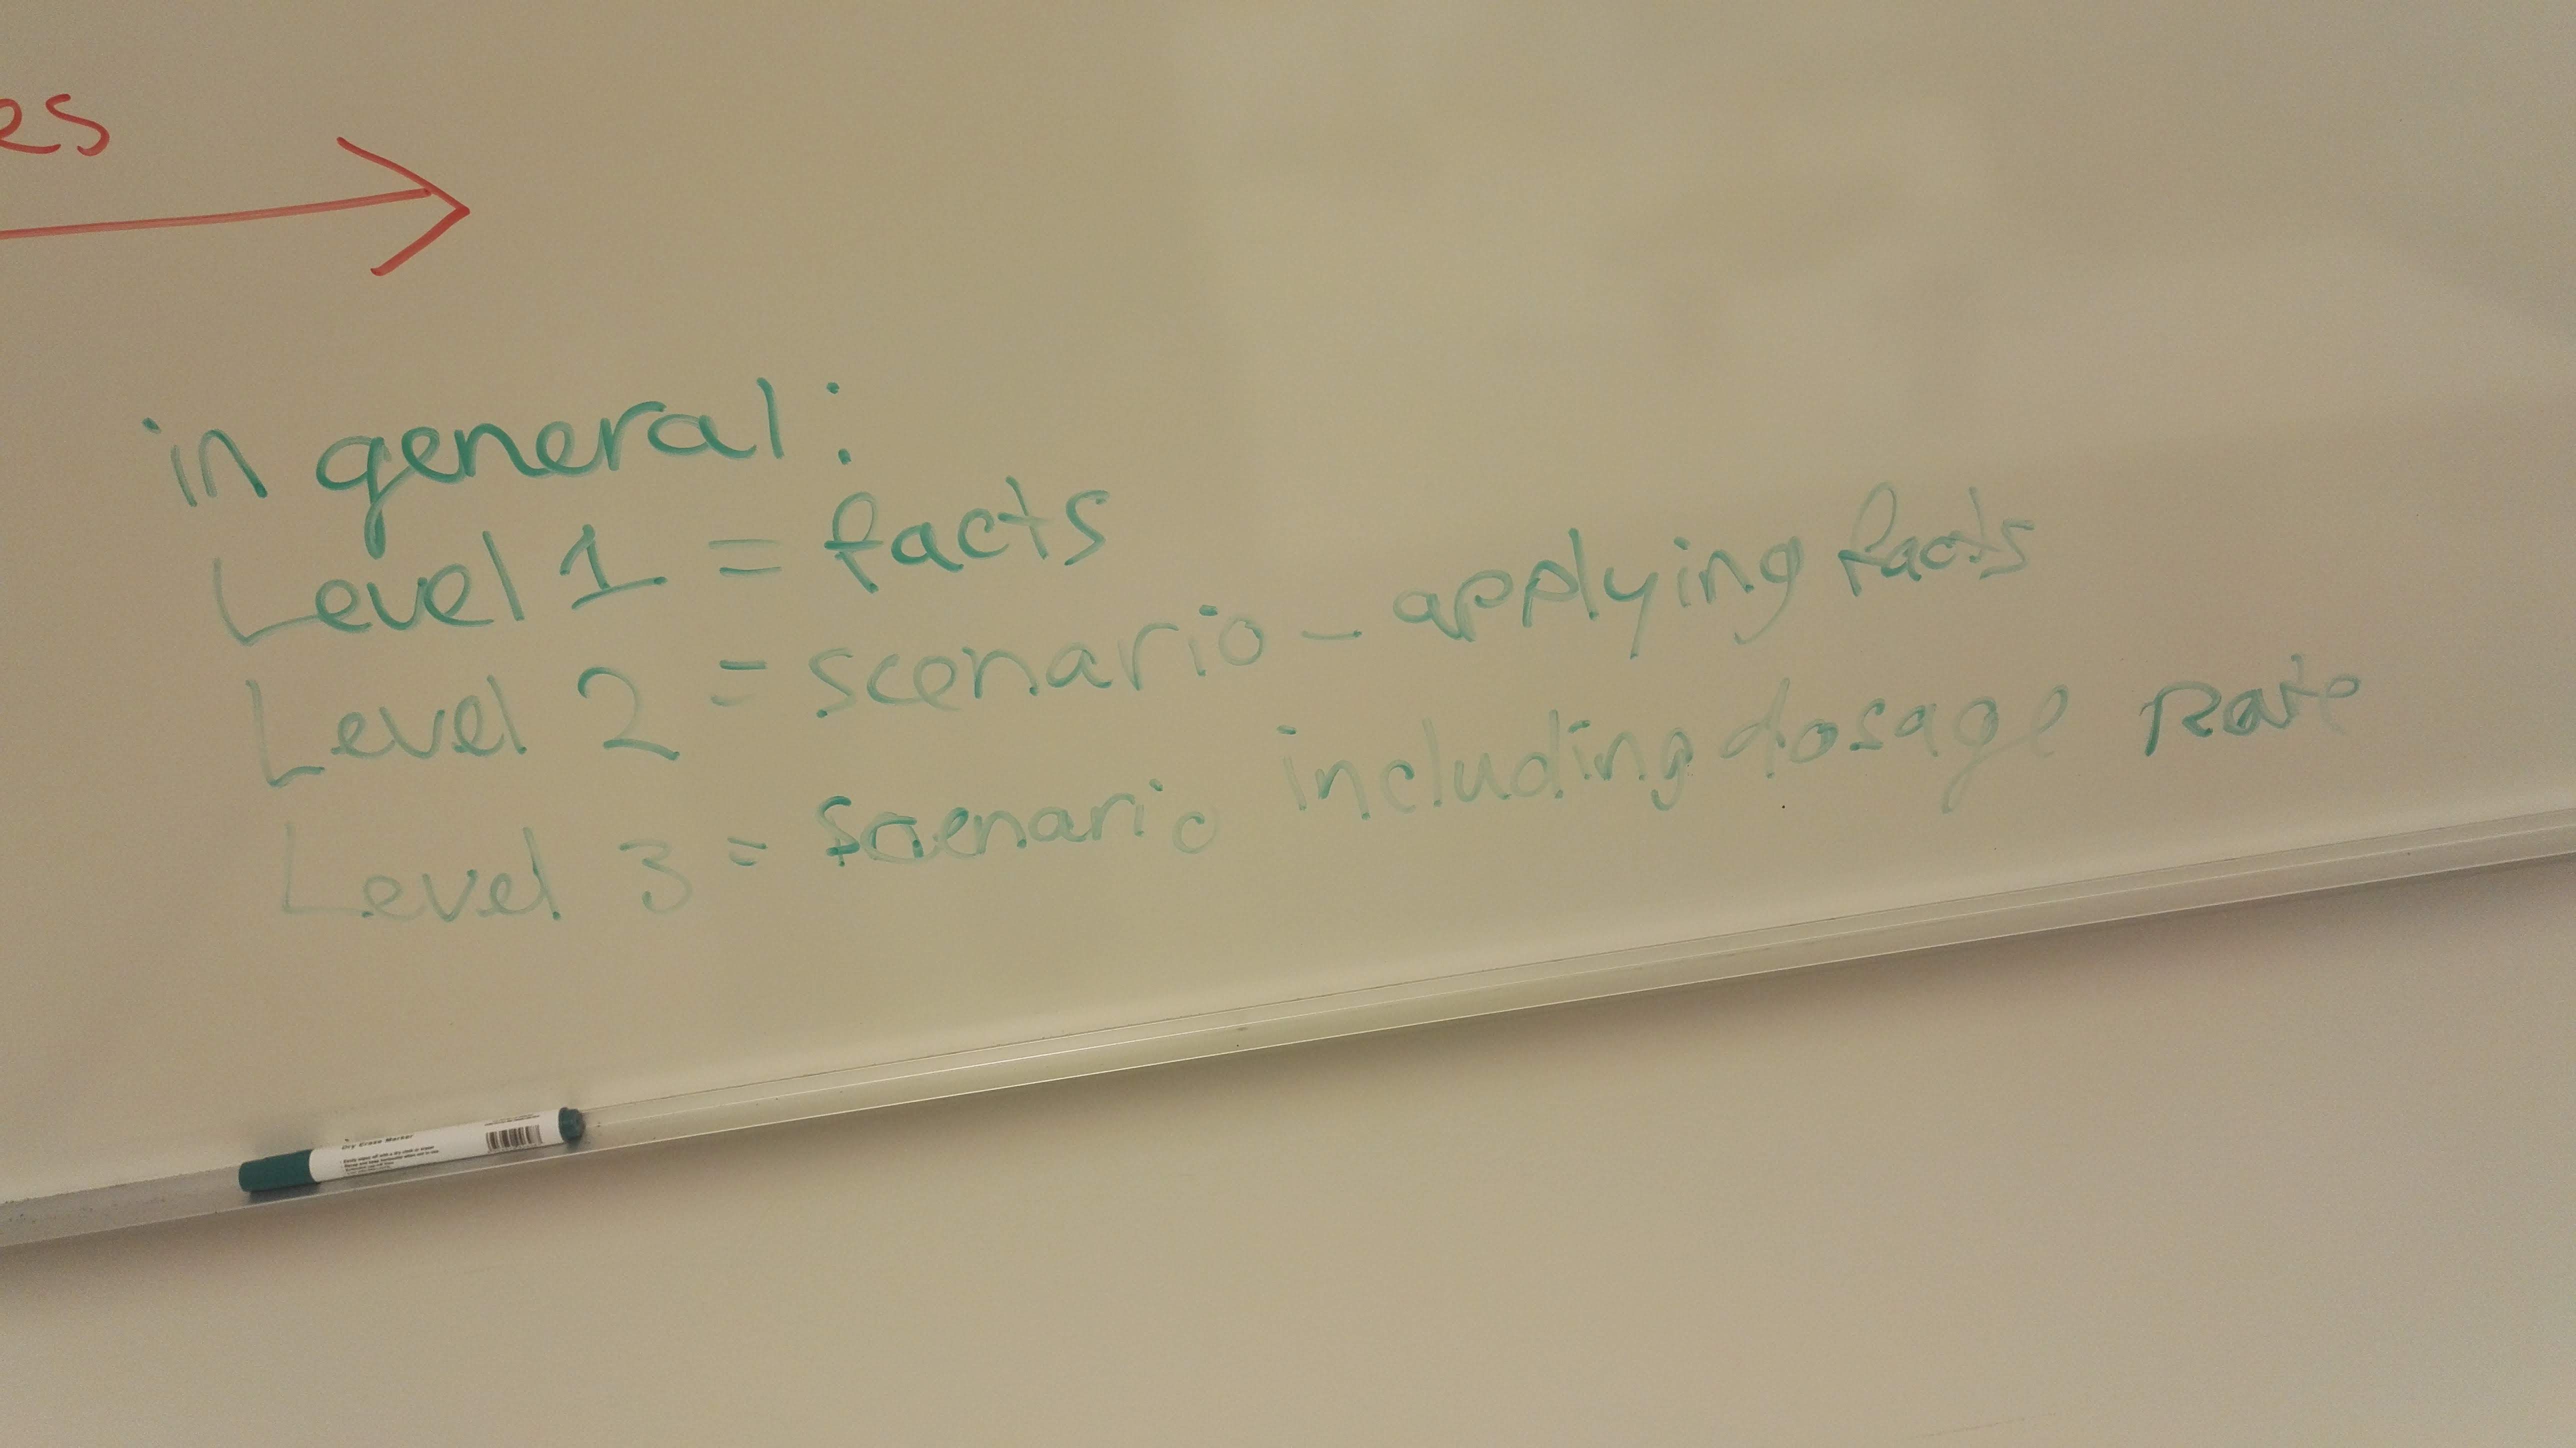 es
in general:
Level 1 = facts
Level 2 = scenario - applying facts
Level 3 = scenario including dosage rate
Dry Erase Marker